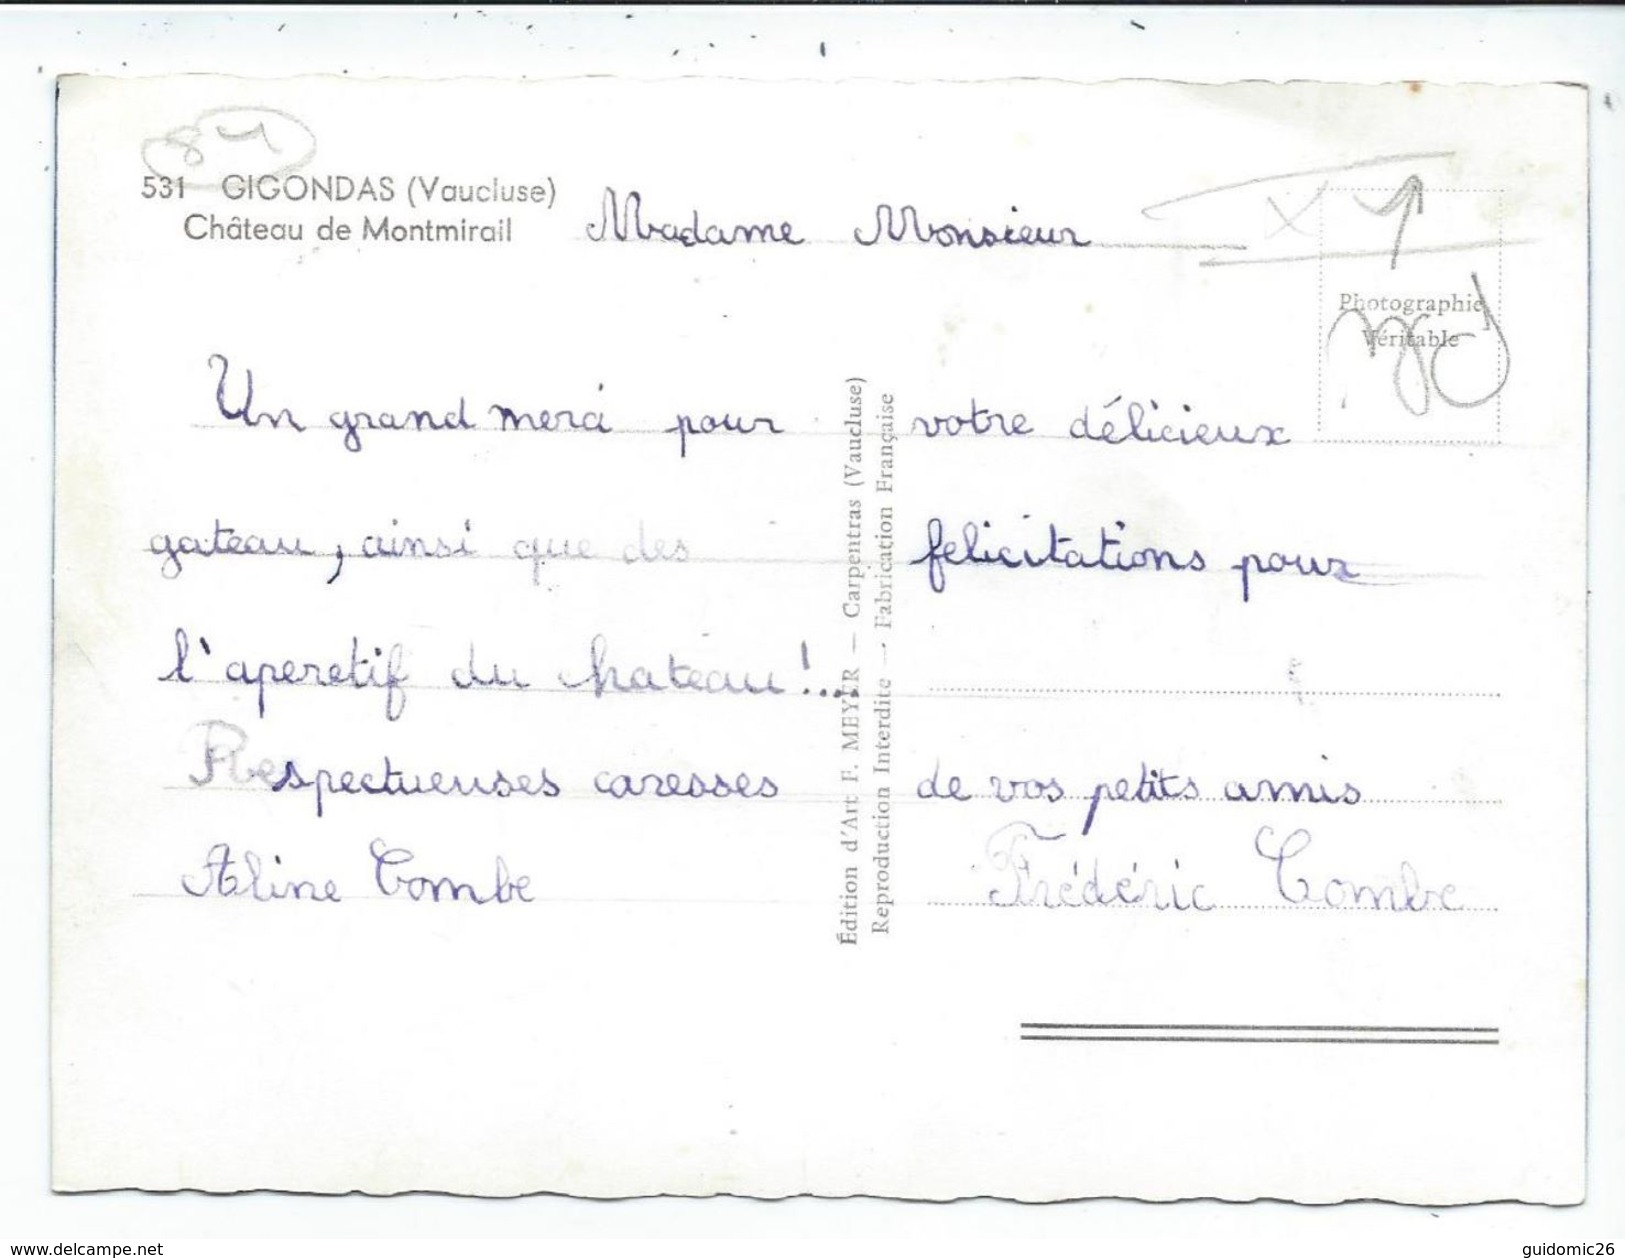 84
531 GIGONDAS (Vaucluse)
Château de Montmirail
Madame Monsieur
Photographie
Véritable
Un grand merci pour votre délicieux
gateau, ainsi que des félicitations pour
l'aperetif du chateau!...
Respectueuses caresses de vos petits amis
Aline Combe Frédéric Combe
Édition d'Art F. MEYER — Carpentras (Vaucluse)
Reproduction Interdite — Fabrication Française
www.delcampe.net
guidomic26